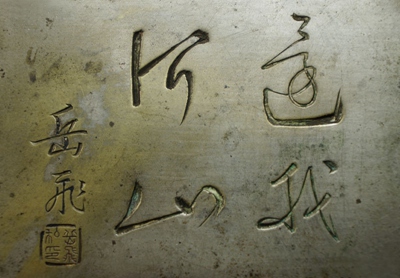 還我
河山
岳飛